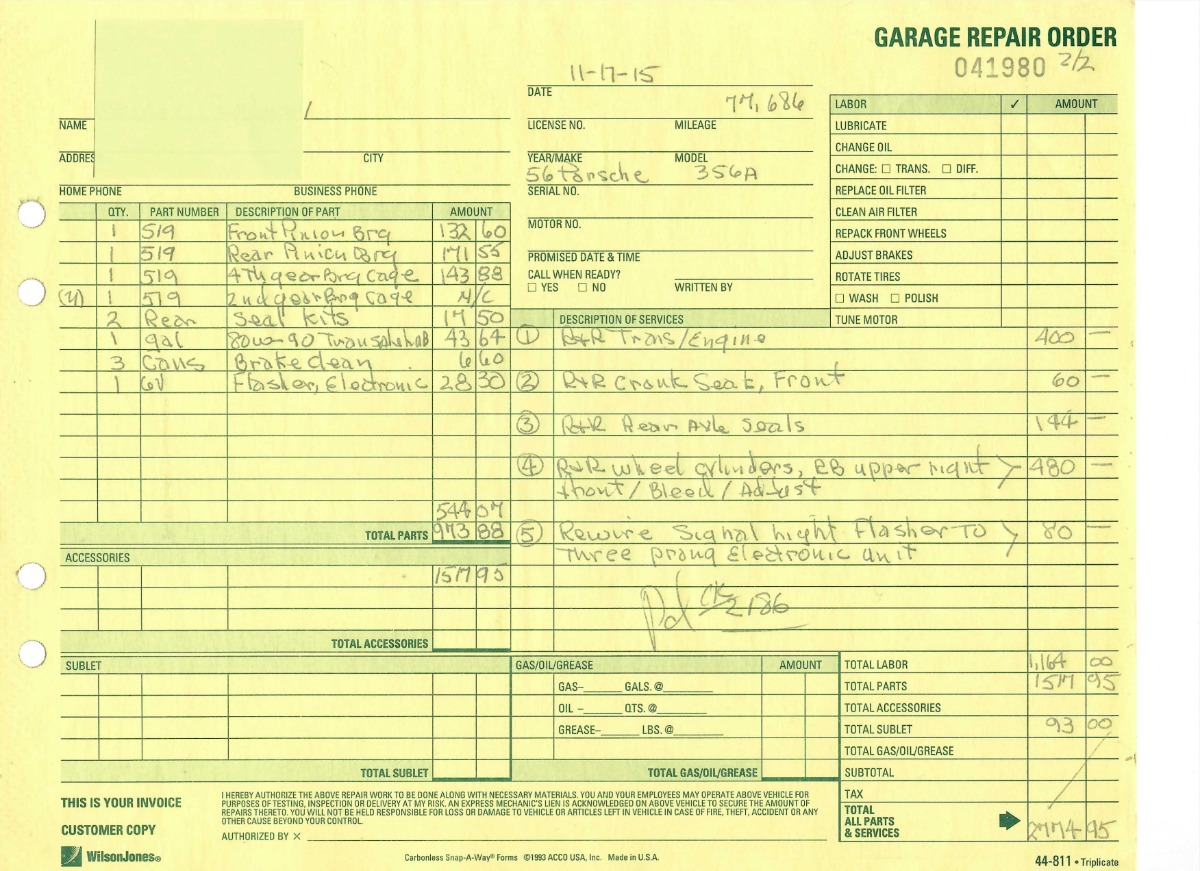 GARAGE REPAIR ORDER
041980 2/2
11-17-15
DATE
77,686
NAME
LICENSE NO. MILEAGE
CITY
YEAR/MAKE MODEL
56 Porsche 356A
HOME PHONE BUSINESS PHONE
SERIAL NO.
MOTOR NO.
PROMISED DATE & TIME
CALL WHEN READY?
☐ YES ☐ NO WRITTEN BY
LABOR ✓ AMOUNT
LUBRICATE
CHANGE OIL
CHANGE: ☐ TRANS. ☐ DIFF.
REPLACE OIL FILTER
CLEAN AIR FILTER
REPACK FRONT WHEELS
ADJUST BRAKES
ROTATE TIRES
☐ WASH ☐ POLISH
TUNE MOTOR
QTY. PART NUMBER DESCRIPTION OF PART AMOUNT
1 519 Front Pinion Brg 132 60
1 519 Rear Pinion Brg 171 55
1 519 4Th gear Brg Cage 143 88
1 519 2nd gear Brg Cage N/C
2 Rear Seal kits 17 50
1 gal 80w-90 43 64
3 Cans Brake clean 6 60
1 6V Flasher, Electronic 28 30
544 07
TOTAL PARTS 973 88
ACCESSORIES
1517 95
TOTAL ACCESSORIES
DESCRIPTION OF SERVICES
① R+R Trans/Engine 400 —
② R+R Crank Seal, Front 60 —
③ R+R Rear Axle Seals 144 —
④ R+R wheel cylinders, RB upper right 480 —
front / Bleed / Adjust
⑤ Rewire Signal Light Flasher To 80 —
Three prong Electronic unit
Pd CK 2186
SUBLET
TOTAL SUBLET
GAS/OIL/GREASE AMOUNT
GAS– GALS. @
OIL – QTS. @
GREASE– LBS. @
TOTAL GAS/OIL/GREASE
TOTAL LABOR 1,164 00
TOTAL PARTS 1517 95
TOTAL ACCESSORIES
TOTAL SUBLET 93 00
TOTAL GAS/OIL/GREASE
SUBTOTAL
TAX
TOTAL
ALL PARTS
& SERVICES 2774 95
THIS IS YOUR INVOICE
CUSTOMER COPY
I HEREBY AUTHORIZE THE ABOVE REPAIR WORK TO BE DONE ALONG WITH NECESSARY MATERIALS. YOU AND YOUR EMPLOYEES MAY OPERATE ABOVE VEHICLE FOR
PURPOSES OF TESTING, INSPECTION OR DELIVERY AT MY RISK. AN EXPRESS MECHANIC'S LIEN IS ACKNOWLEDGED ON ABOVE VEHICLE TO SECURE THE AMOUNT OF
REPAIRS THERETO. YOU WILL NOT BE HELD RESPONSIBLE FOR LOSS OR DAMAGE TO VEHICLE OR ARTICLES LEFT IN VEHICLE IN CASE OF FIRE, THEFT, ACCIDENT OR ANY
OTHER CAUSE BEYOND YOUR CONTROL.
AUTHORIZED BY X
WilsonJones®
Carbonless Snap-A-Way® Forms ©1993 ACCO USA, Inc. Made in U.S.A.
44-811 • Triplicate